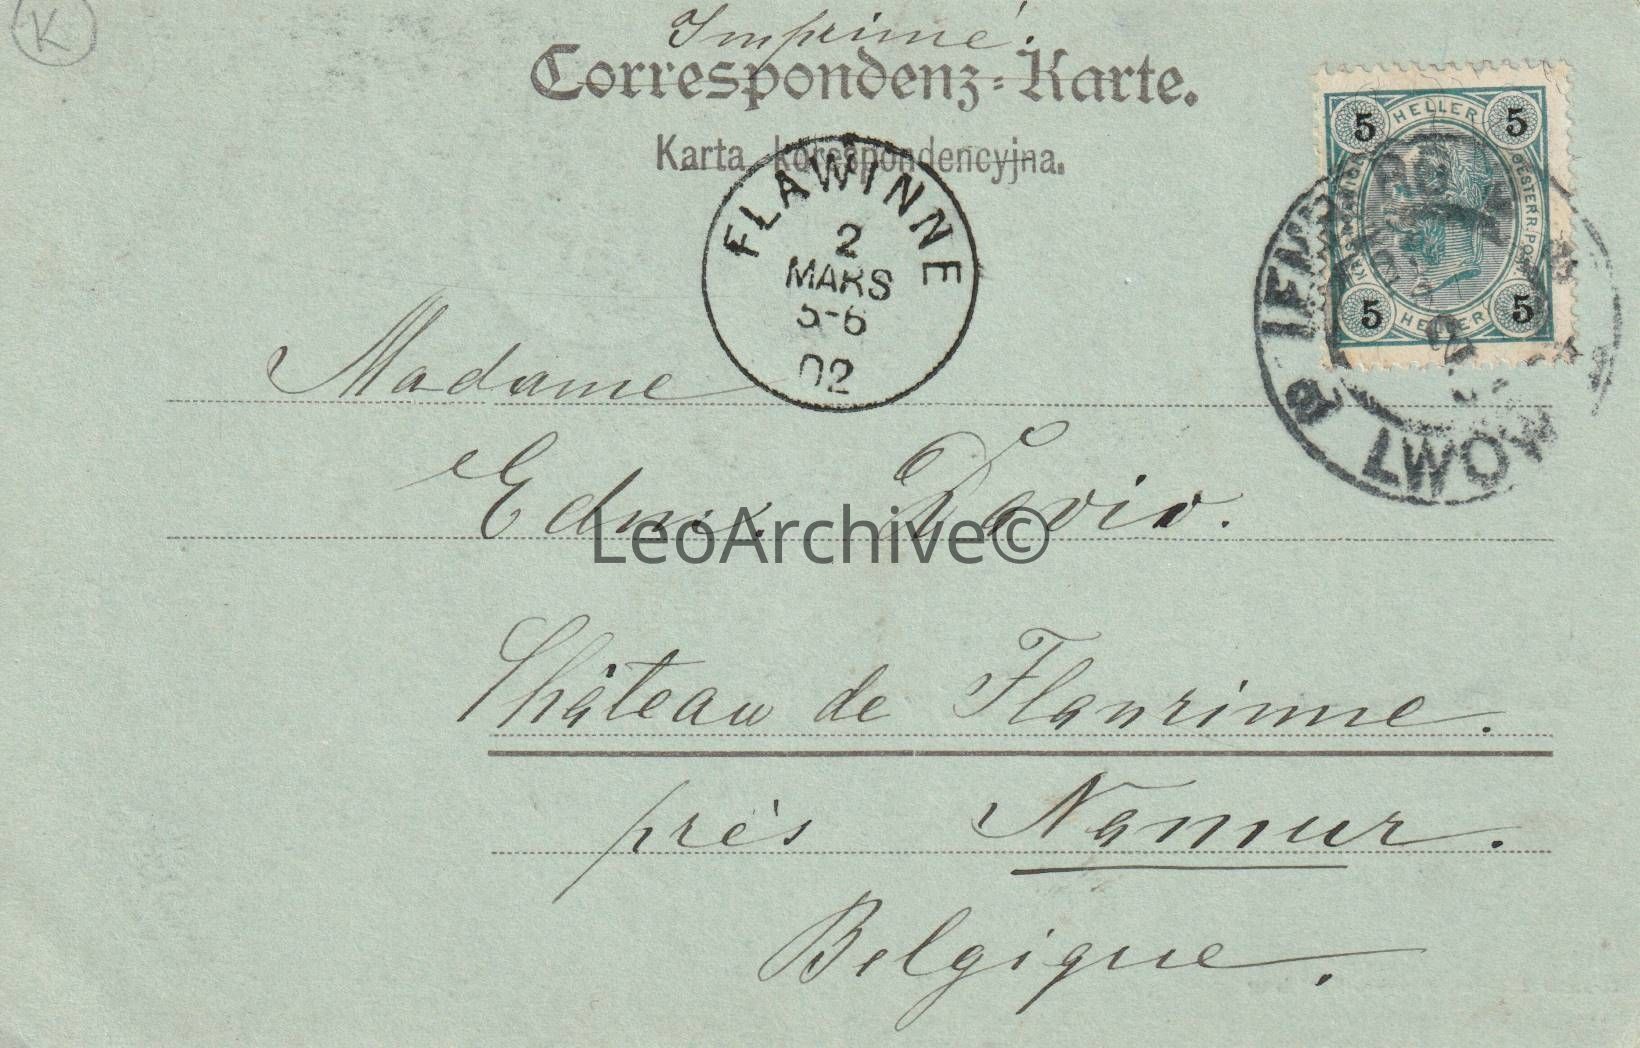 K
Imprimé.
Correspondenz-Karte.
Karta korespondencyjna.
HELLER
5 5
OESTERR. POST.
5 5
HELLER
FLAWINNE
2
MARS
5-6
02
LEMB
LWOW
Madame
Edm. David.
LeoArchive©
Château de Flawinne.
près Namur.
Belgique.